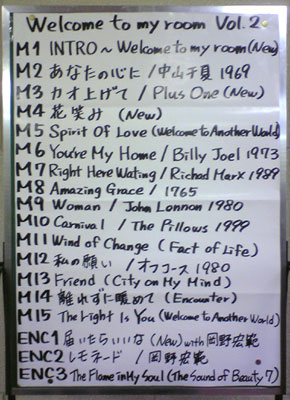 Welcome to my room Vol.2
M1 INTRO ~ Welcome to my room (New)
M2 あなたの心に / 中山千夏 1969
M3 カオ上げて / Plus One (New)
M4 花笑み (New)
M5 Spirit Of Love (Welcome to Another World)
M6 You're My Home / Billy Joel 1973
M7 Right Here Wating / Richad Marx 1999
M8 Amazing Grace / 1765
M9 Woman / John Lonnon 1980
M10 Carnival / The Pillows 1999
M11 Wind of Change (Fact of Life)
M12 私の願い / オフコース 1980
M13 Friend (City on My Mind)
M14 離れずに暖めて (Encounter)
M15 The Light Is You (Welcome to Another World)
ENC1 届いたらいいな (New) with 岡野宏範
ENC2 レモネード / 岡野宏範
ENC3 The Flame in My Soul (The Sound of Beauty 7)